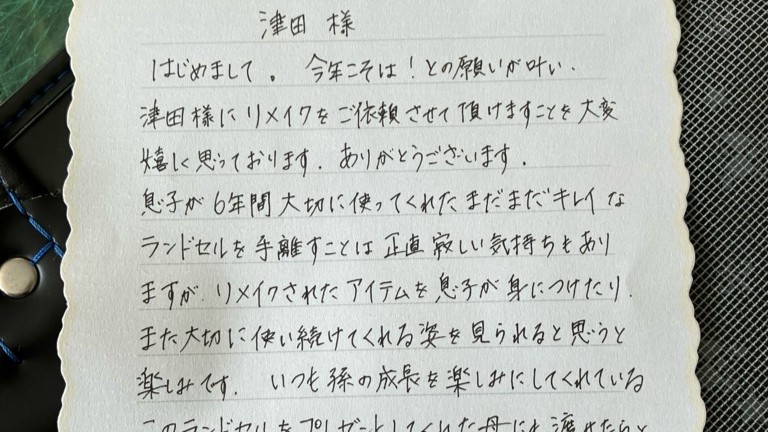 津田 様
はじめまして。 今年こそは!との願いが叶い.
津田様にリメイクをご依頼させて頂けますことを大変
嬉しく思っております. ありがとうございます.
息子が6年間大切に使ってくれたまだまだキレイな
ランドセルを手離すことは正直寂しい気持ちもあり
ますが.リメイクされたアイテムを息子が身につけたり.
また大切に使い続けてくれる姿を見られると思うと
楽しみです. いつも孫の成長を楽しみにしてくれている
このランドセルをプレゼントしてくれた母にも渡せたらと